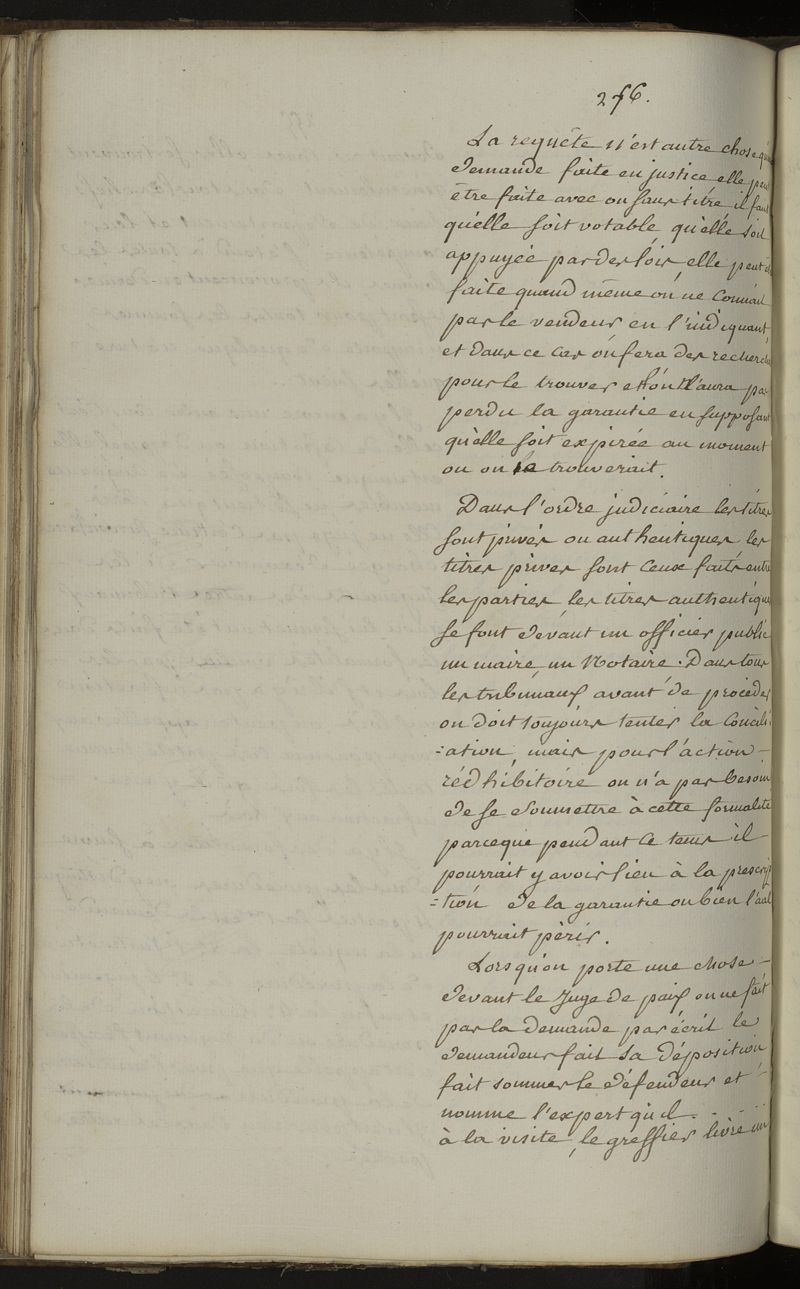 256.
La requête n'est autre chose qu'une
demande faite en justice elle peut
être faite avec ou sans titre il faut
qu'elle soit votable, qu'elle soit
appuyée par des lois, elle peut être
faite quand même on ne connait
pas le vendeur en l'indiquant,
et dans ce cas on fera des recherches
pour le trouver et on n'aura pas
perdu la garantie en supposant
qu'elle soit expirée au moment
ou on le trouverait.
Dans l'ordre judiciaire les titres
sont privés ou authentiques les
titres privés sont ceux faits entre
les parties, les titres authentiques
se font devant un officier public
un maire, un Notaire. Dans tous
les tribunaux avant de procéder
on doit toujours tenter la Concili
=ation, mais pour l'action -
rédhibitoire on n'a pas besoin
de se soumettre à cette formalité
parceque pendant ce tems il -
pourrait y avoir lieu à la prescrip
=tion de la garantie ou bien l'aal
pourrait périr.
Lorsqu'on porte une chose -
devant le Juge de paix on ne fait
pas la demande par écrit le
demandeur fait sa déposition
fait sommer le défendeur et -
nomme l'expert qu'il . . . . .
à la visite, le greffier livre un